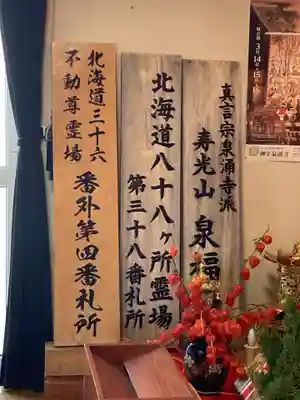 真言宗泉涌寺派
寿光山 泉福
北海道八十八ヶ所霊場
第三十八番札所
北海道三十六
不動尊霊場
番外第四番札所
3月
14日
15日
16日